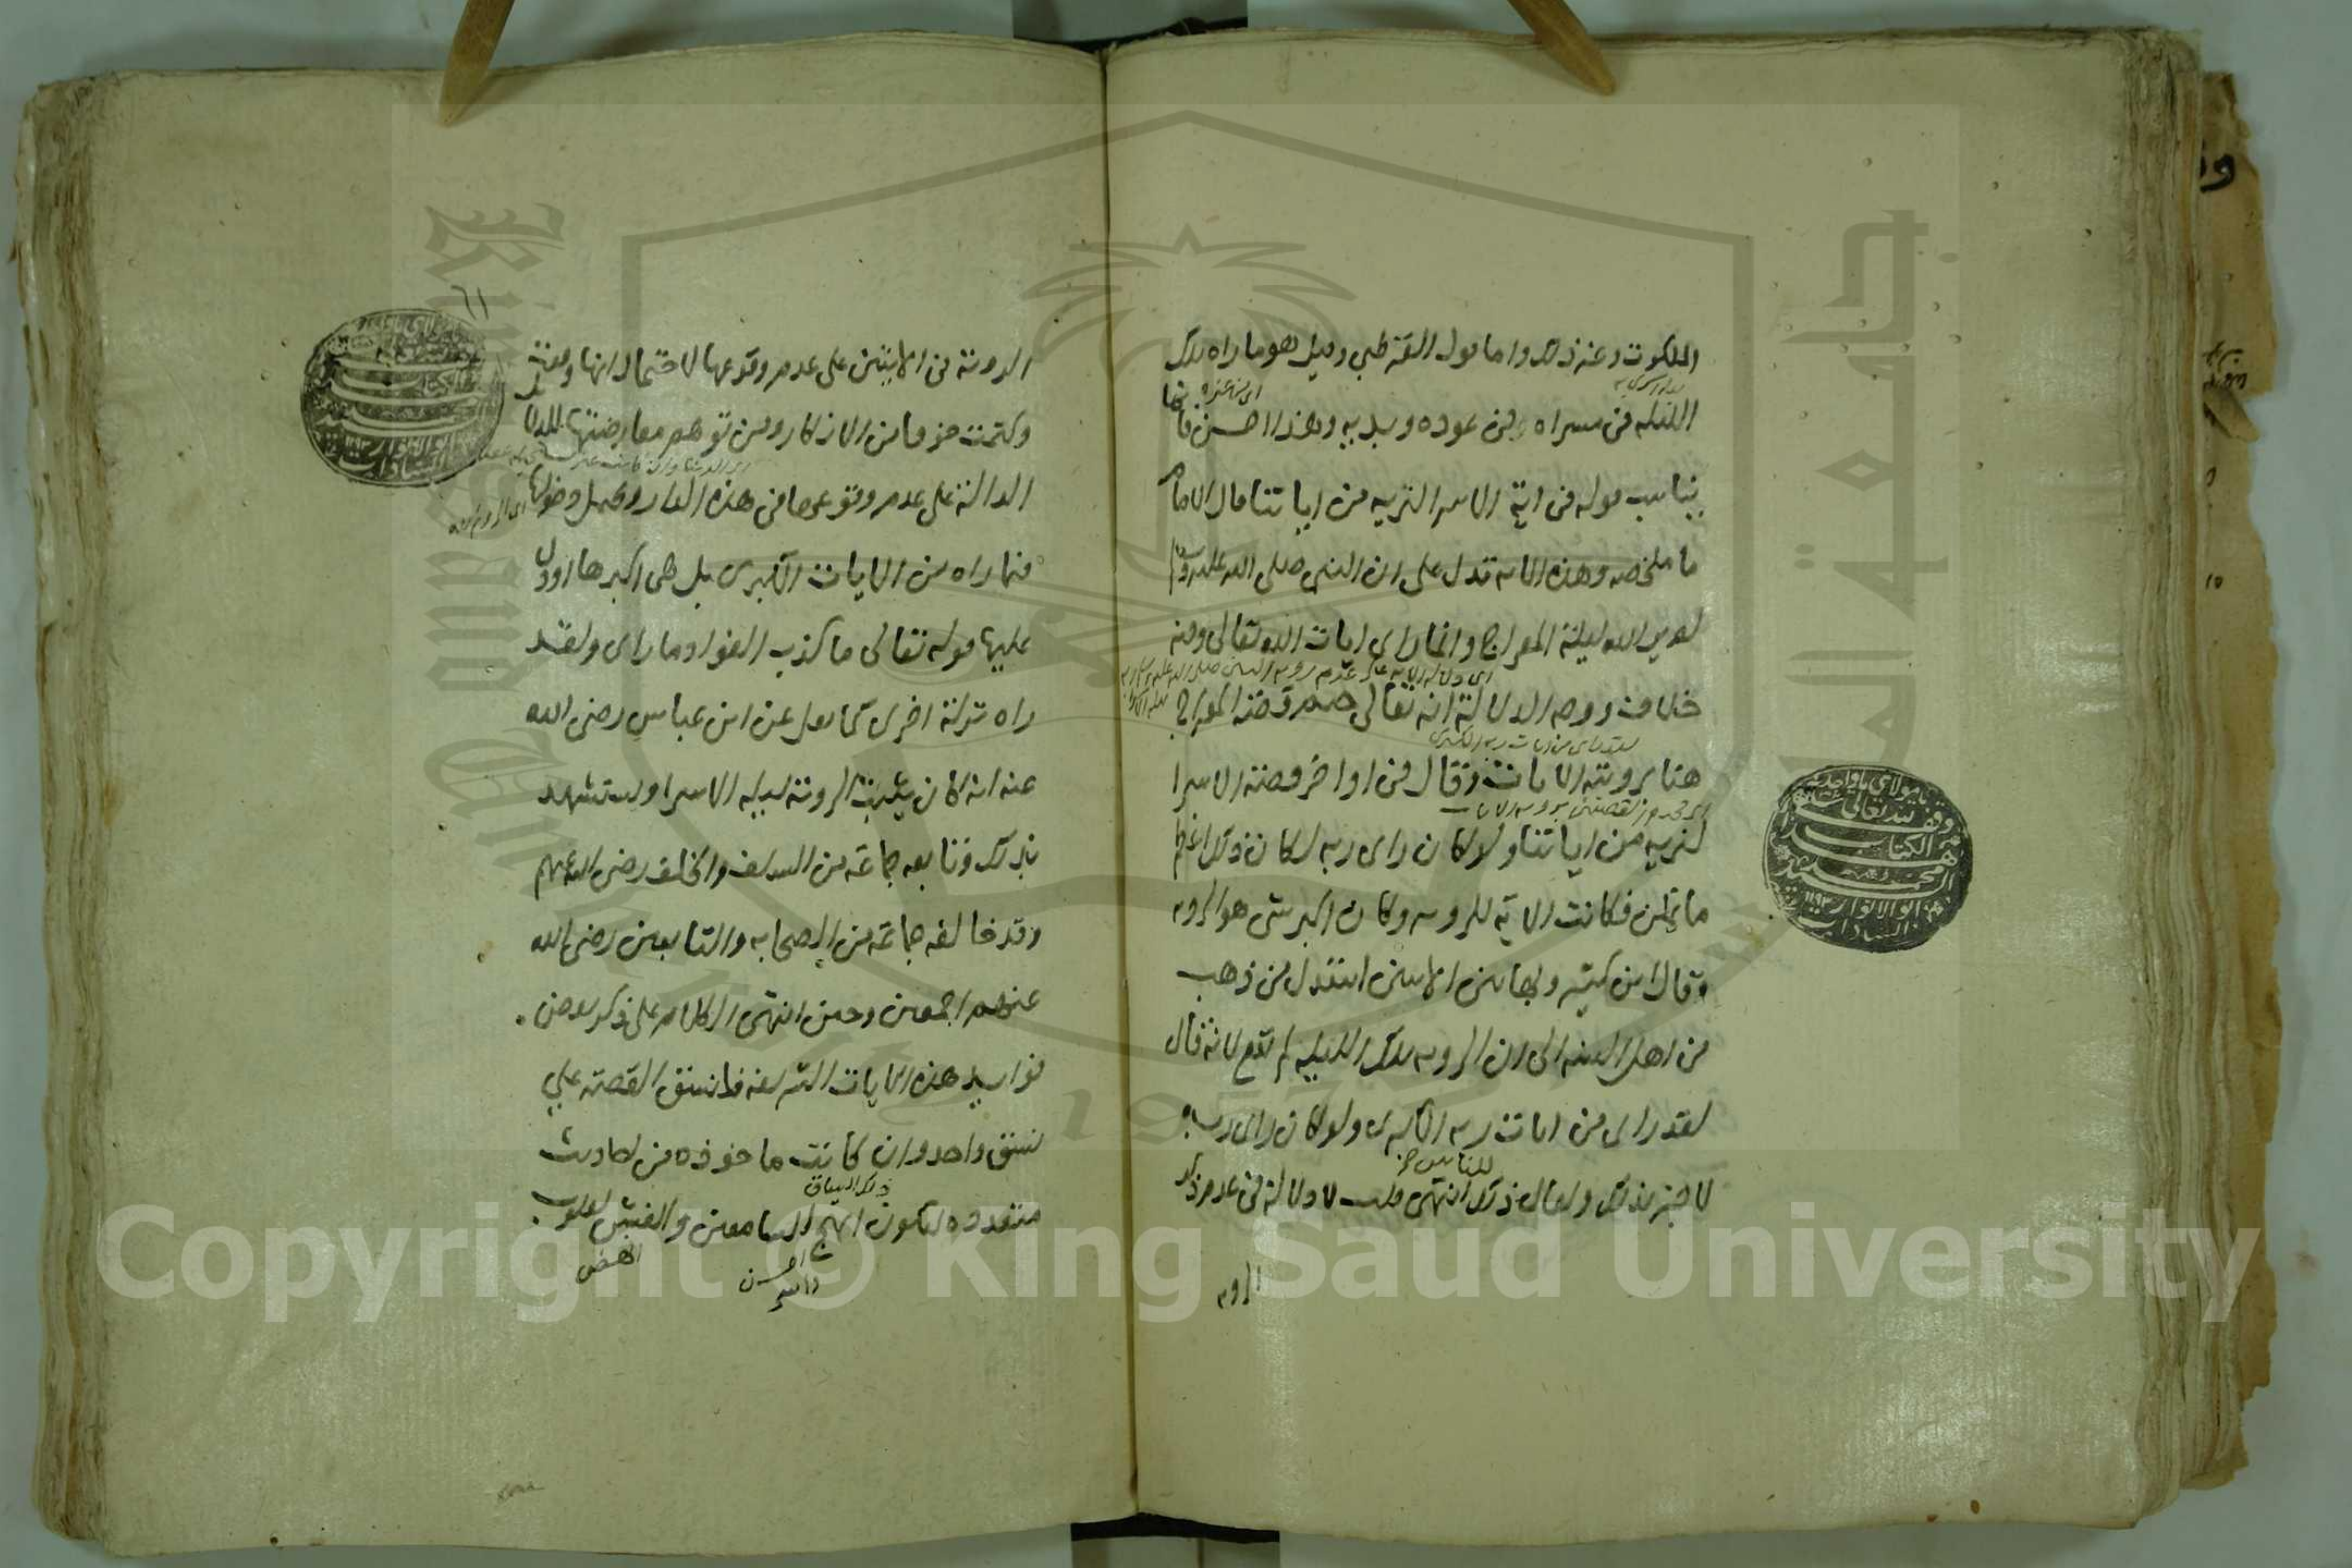 الملكوت وعنه ذلك واما قول القرطبي وقيل هو ما راه تلك
الليله في مسراه في عوده وبديه وهذا احسن
يناسب قوله في اية الاسرا لنريه من اياتنا قال الامام
ما ملخصه وهذه الايه تدل على ان النبي صلى الله عليه وسلم
لم ير الله ليلة المعراج وانما راى ايات الله تعالى وفيه
خلاف ووجه الدلالة انه تعالى ختم قصة المعراج
هنا برويته الايات وقال في اواخر قصة الاسرا
لنريه من اياتنا ولو كان راى ربه لكان ذلك اعظم
ما يمكن فكانت الاية للرويه وكان اكبر شي هو الرويه
وقال ابن كثير وبهاتين الايتين استدل من ذهب
من اهل السنه الى ان الرويه تلك الليله لم تقع لانه قال
لقد راى من ايات ربه الكبرى ولو كان راى ربه
لاخبر بذلك ولقال ذلك للناس انتهى قلت لا دلالة في عدم ذكر
الرويه
٦١
الروية في الايتين على عدم وقوعها لاحتمال انها وقعت
وكتمت خوفا من الانكار ومن توهم معارضتها
الدالة على عدم وقوعها في هذه الدار ويحتمل دخولها
فيما راه من الايات الكبرى بل هي اكبرها او دل
عليها قوله تعالى ما كذب الفواد ما راى ولقد
راه نزلة اخرى كما نقل عن ابن عباس رضي الله
عنه انه كان يثبت الروية ليله الاسرا ويستشهد
بذلك وتابعه جماعة من السلف والخلف رضي الله عنهم
وقد خالفه جماعة من الصحابه والتابعين رضي الله
عنهم اجمعين وحين انتهى الكلام على ذكر بعض
فوايد هذه الايات الشريفه فلنسق القصة علي
نسق واحد وان كانت ماخوذه من احاديث
متعدده ليكون ذلك السياق ابهج للسامعين
يا مولاي يا واحد
وقف لله تعالى
الكتاب
محمد
ابو الانوار
السادات
Copyright © King Saud University
King Saud University
جامعة الملك سعود
1957